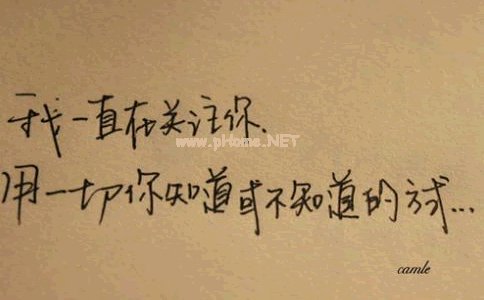 我一直在关注你.
www.pHome.NET
用一切你知道或不知道的方式...
camle